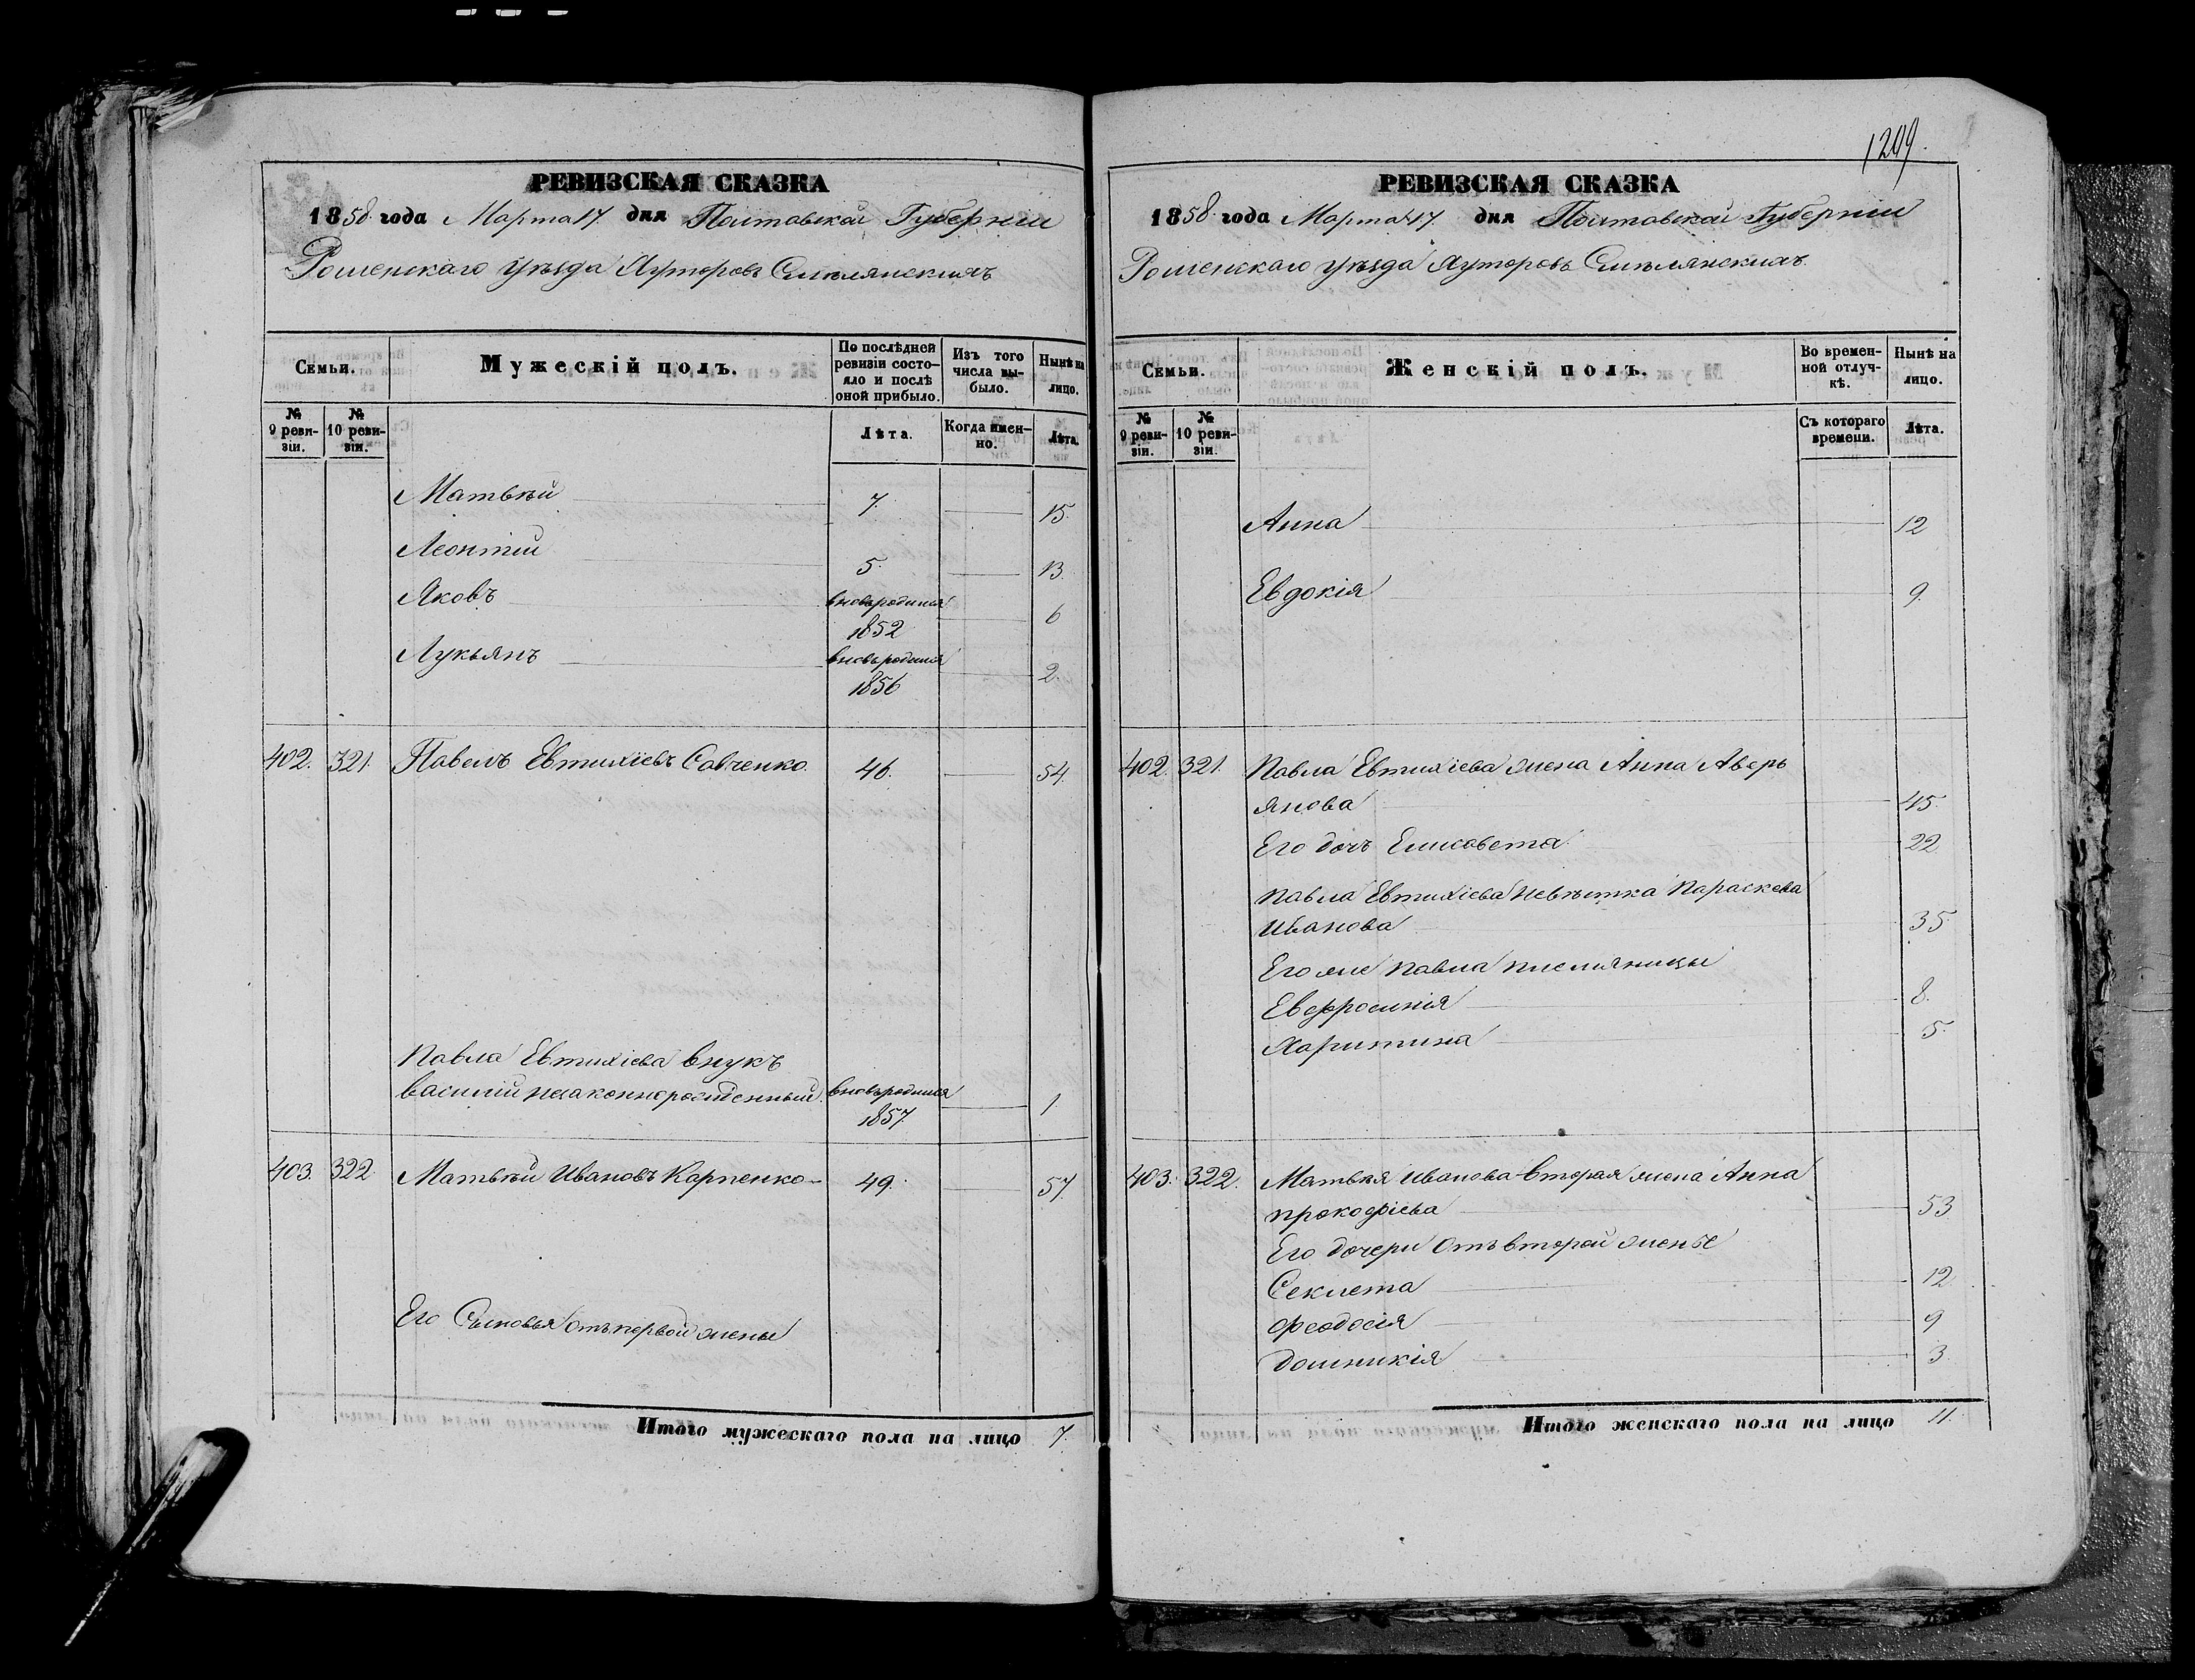 РЕВИЗСКАЯ СКАЗКА
1858 года Марта 17 дня Полтавской Губерніи
Роменскаго уѣзда Хуторовъ Смѣлянскихъ
Семьи.
Мужескій полъ.
По послѣдней ревизіи состояло и послѣ оной прибыло.
Изъ того числа выбыло.
Нынѣ на лицо.
№ 9 ревизіи.
№ 10 ревизіи.
Лѣта.
Когда именно.
Лѣта.
Матвѣй 7. 15.
Леонтій 5. 13.
Яковъ вновьродился 1852 6
Лукьянъ вновьродился 1856 2.
402. 321. Павелъ Евтихіевъ Савченко. 46. 54
Павла Евтихіева внукъ
василий незаконнорожденный. вновьродился 1857. 1.
403. 322 Матвѣй Ивановъ Карпенко 49. 57
Его Сыновья отъ первой жены
Итого мужескаго пола на лицо 7.
1299.
РЕВИЗСКАЯ СКАЗКА
1858 года Марта 17. дня Полтавской Губерніи
Роменскаго уѣзда Хуторовъ Смѣлянскихъ
Семьи.
Женскій полъ.
Во временной отлучкѣ.
Нынѣ на лицо.
№ 9 ревизіи.
№ 10 ревизіи.
Съ котораго времени.
Лѣта.
Анна 12
Евдокія 9.
402. 321. Павла Евтихіева жена Анна Аверь
янова 45.
Его дочь Елисавета 22
Павла Евтихіева невѣстка Параскева
Иванова 35
Его же Павла племяницы
Евфросинія 8.
Харитина 5.
403. 322. Матвѣя Иванова вторая жена Анна
прокофіева 53
Его дочери отъ второй жены
Секлета 12
Феодосія 9
Домникія 3.
Итого женскаго пола на лицо 11.